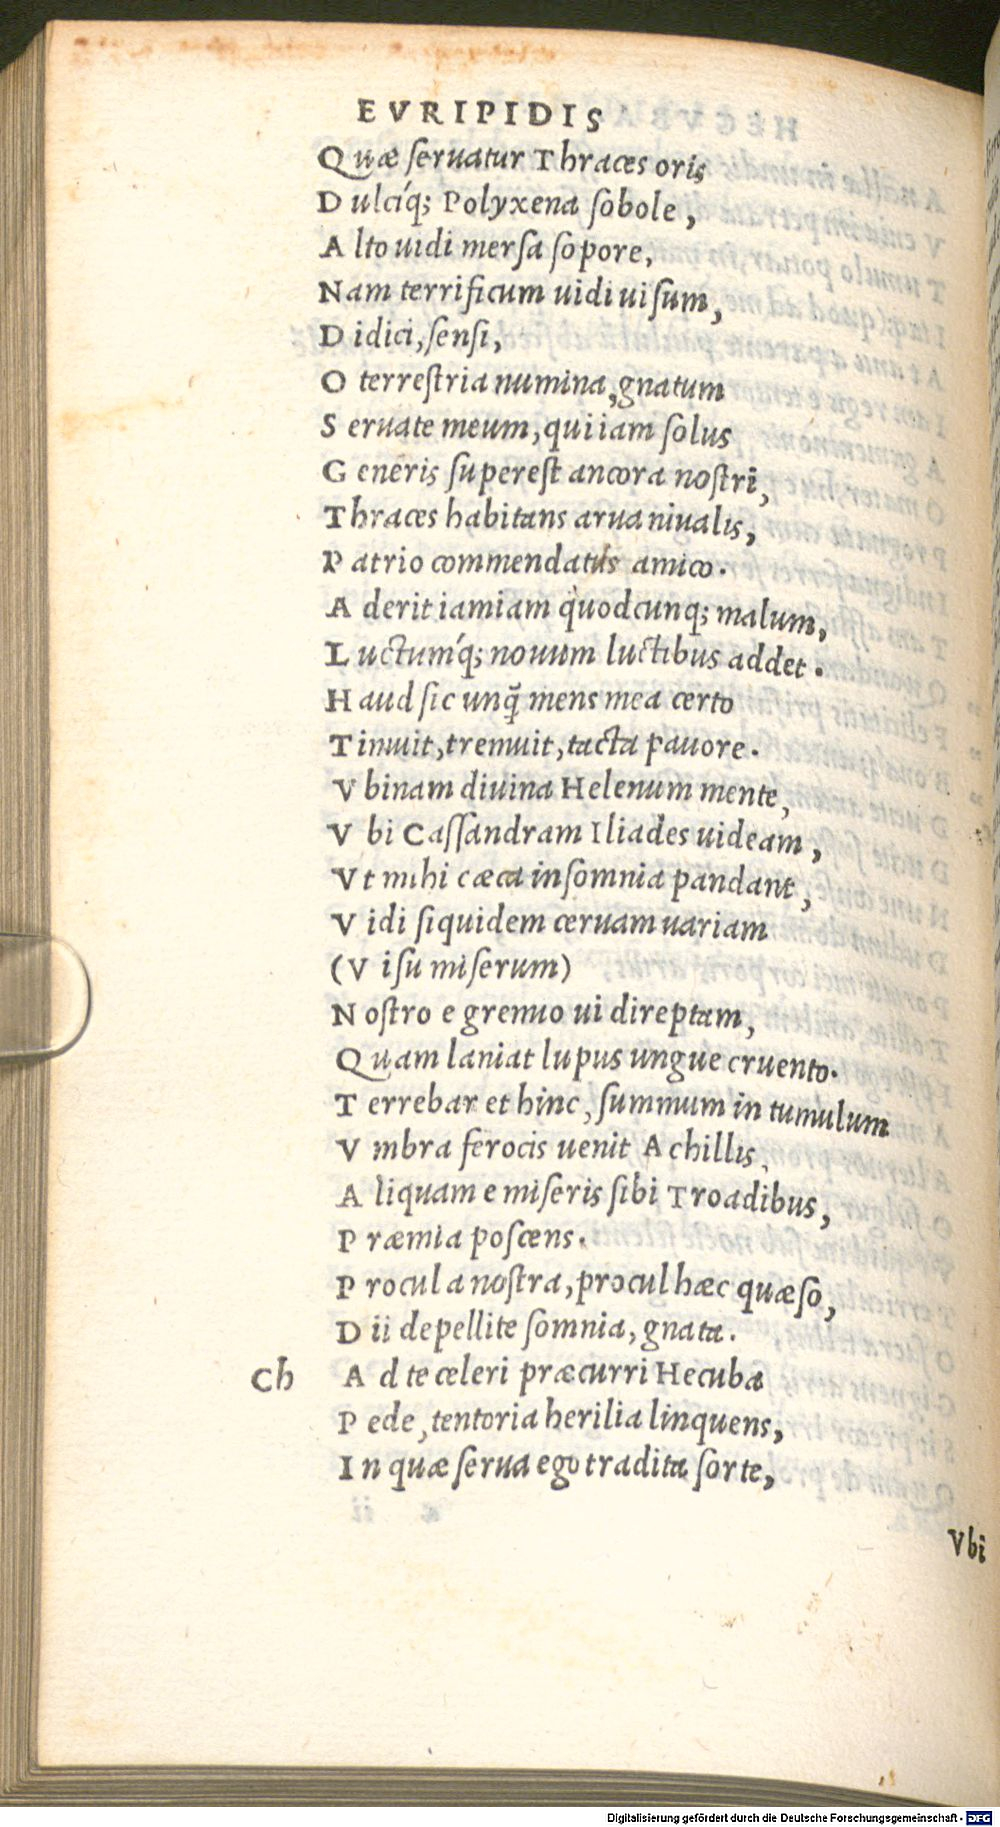 EVRIPIDIS
Quæ ſeruatur Thraces oris
Dulcíq; Polyxena ſobole,
Alto uidi merſa ſopore,
Nam terrificum uidi uiſum,
Didici, ſenſi,
O terreſtria numina, gnatum
Seruate meum, qui iam ſolus
Generis ſupereſt ancora noſtri,
Thraces habitans arua niualis,
Patrio commendatus amico.
Aderit iamiam quodcunq; malum,
Luctumq́; nouum luctibus addet.
Haud ſic unq̃ mens mea certo
Timuit, tremuit, tacta pauore.
Vbinam diuina Helenum mente,
Vbi Caſſandram Iliades uideam,
Vt mihi cæca inſomnia pandant,
Vidi ſiquidem ceruam uariam
(Viſu miſerum)
Noſtro e gremio ui direptam,
Quam laniat lupus ungue cruento.
Terrebar et hinc, ſummum in tumulum
Vmbra ferocis uenit Achillis,
Aliquam e miſeris ſibi Troadibus,
Præmia poſcens.
Procul a noſtra, procul hæc quæſo,
Dii depellite ſomnia, gnata.
Ch Ad te celeri præcurri Hecuba
Pede, tentoria herilia linquens,
In quæ ſerua ego tradita ſorte,
Vbi
Digitalisierung gefördert durch die Deutsche Forschungsgemeinschaft - DFG